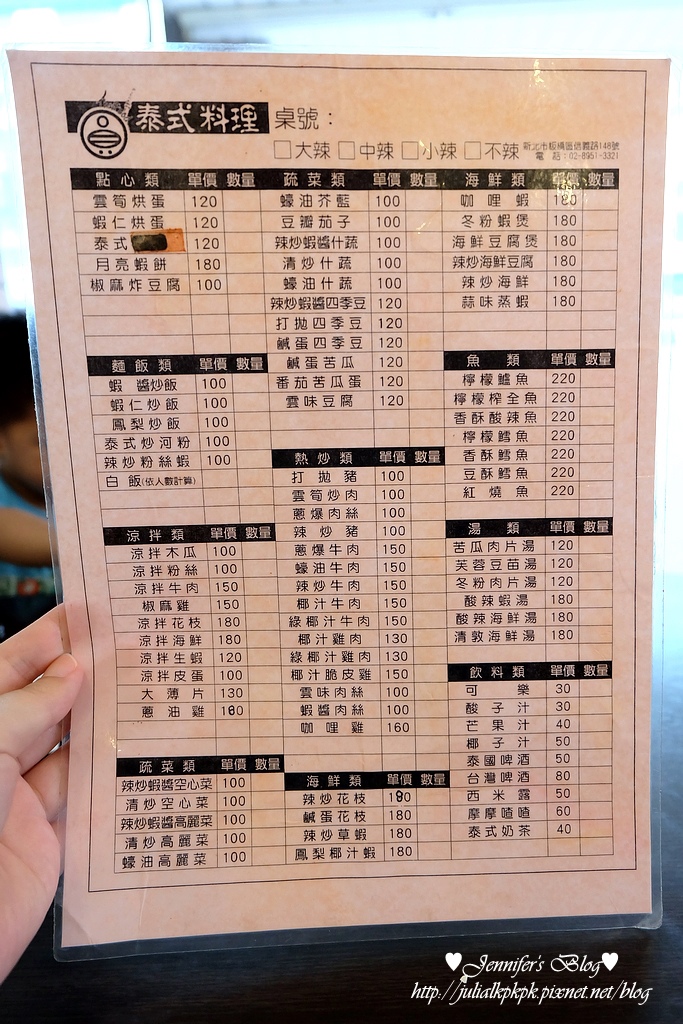 泰式料理 桌號：
□大辣 □中辣 □小辣 □不辣
新北市板橋區信義路148號
電話：02-8951-3321
點心類 單價 數量
雲筍烘蛋 120
蝦仁烘蛋 120
泰式 120
月亮蝦餅 180
椒麻炸豆腐 100
麵飯類 單價 數量
蝦醬炒飯 100
蝦仁炒飯 100
鳳梨炒飯 100
泰式炒河粉 100
辣炒粉絲蝦 100
白飯(依人數計算)
涼拌類 單價 數量
涼拌木瓜 100
涼拌粉絲 100
涼拌牛肉 150
椒麻雞 150
涼拌花枝 180
涼拌海鮮 180
涼拌生蝦 120
涼拌皮蛋 100
大薄片 130
蔥油雞 180
蔬菜類 單價 數量
辣炒蝦醬空心菜 100
清炒空心菜 100
辣炒蝦醬高麗菜 100
清炒高麗菜 100
蠔油高麗菜 100
蔬菜類 單價 數量
蠔油芥藍 100
豆瓣茄子 100
辣炒蝦醬什蔬 100
清炒什蔬 100
蠔油什蔬 100
辣炒蝦醬四季豆 120
打拋四季豆 120
鹹蛋四季豆 120
鹹蛋苦瓜 120
番茄苦瓜蛋 120
雲味豆腐 120
熱炒類 單價 數量
打拋豬 100
雲筍炒肉 100
蔥爆肉絲 100
辣炒豬 100
蔥爆牛肉 150
蠔油牛肉 150
辣炒牛肉 150
椰汁牛肉 150
綠椰汁牛肉 150
椰汁雞肉 130
綠椰汁雞肉 130
椰汁脆皮雞 150
雲味肉絲 100
蝦醬肉絲 100
咖哩雞 160
海鮮類 單價 數量
辣炒花枝 180
鹹蛋花枝 180
辣炒草蝦 180
鳳梨椰汁蝦 180
海鮮類 單價 數量
咖哩蝦 180
冬粉蝦煲 180
海鮮豆腐煲 180
辣炒海鮮豆腐 180
辣炒海鮮 180
蒜味蒸蝦 180
魚類 單價 數量
檸檬鱸魚 220
檸檬榨全魚 220
香酥酸辣魚 220
檸檬鱈魚 220
香酥鱈魚 220
豆酥鱈魚 220
紅燒魚 220
湯類 單價 數量
苦瓜肉片湯 120
芙蓉豆苗湯 120
冬粉肉片湯 120
酸辣蝦湯 180
酸辣海鮮湯 180
清敦海鮮湯 180
飲料類 單價 數量
可樂 30
酸子汁 30
芒果汁 40
椰子汁 50
泰國啤酒 50
台灣啤酒 80
西米露 50
摩摩喳喳 60
泰式奶茶 40
♥Jennifer's Blog♥
http://julialkpkpk.pixnet.net/blog